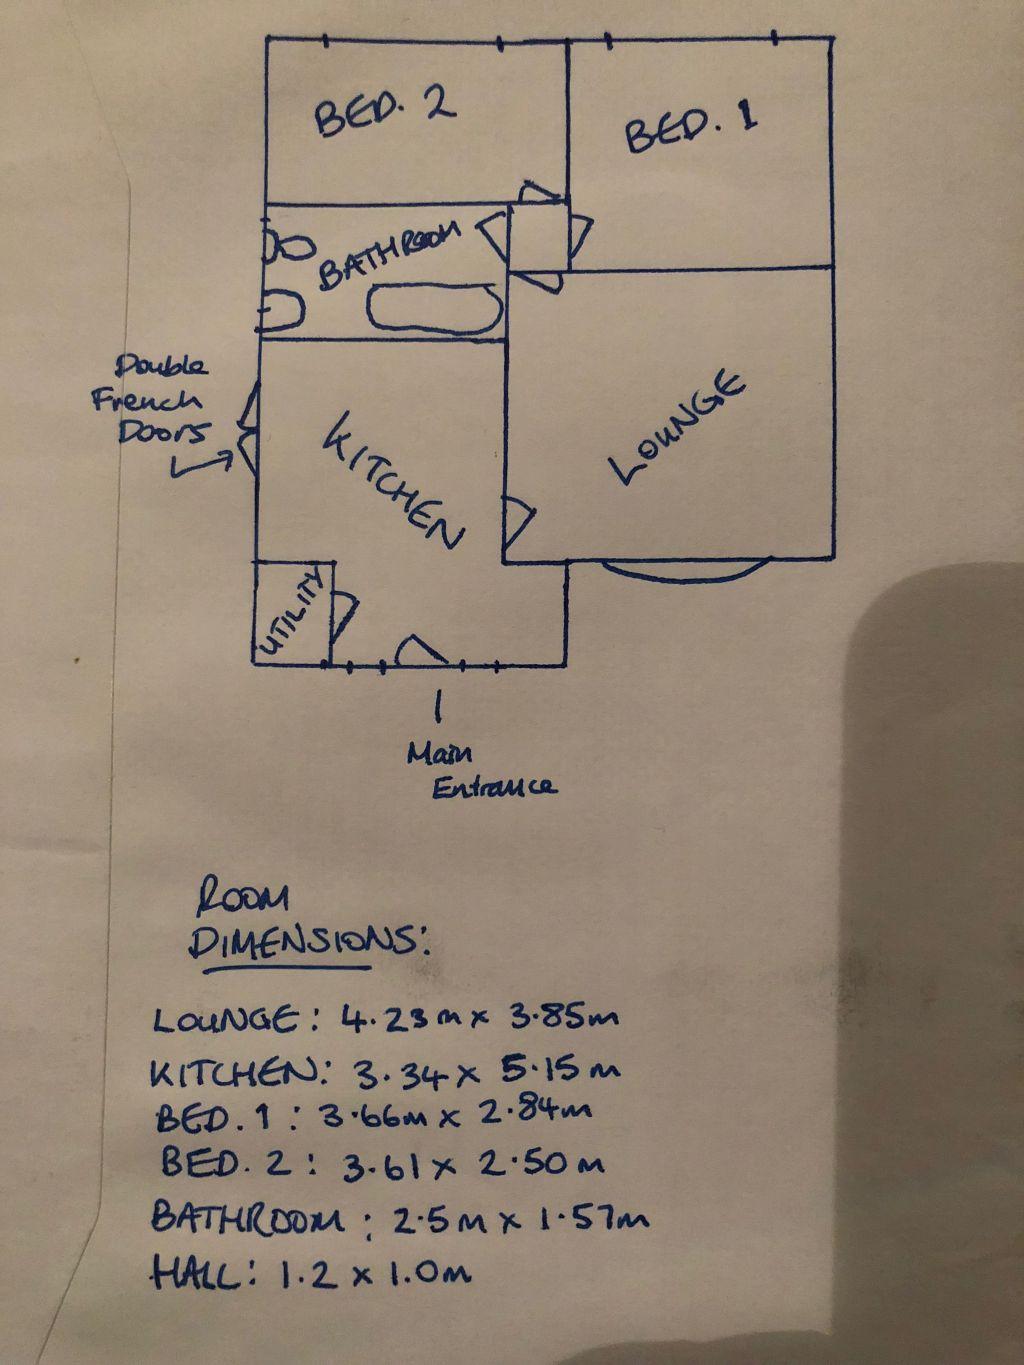 BED. 2
BED. 1
BATHROOM
Double
French
Doors
KITCHEN
LOUNGE
UTILITY
Main
Entrance
ROOM
DIMENSIONS:
LOUNGE: 4.23m x 3.85m
KITCHEN: 3.34 x 5.15m
BED. 1: 3.66m x 2.84m
BED. 2: 3.61 x 2.50m
BATHROOM: 2.5m x 1.57m
HALL: 1.2 x 1.0m